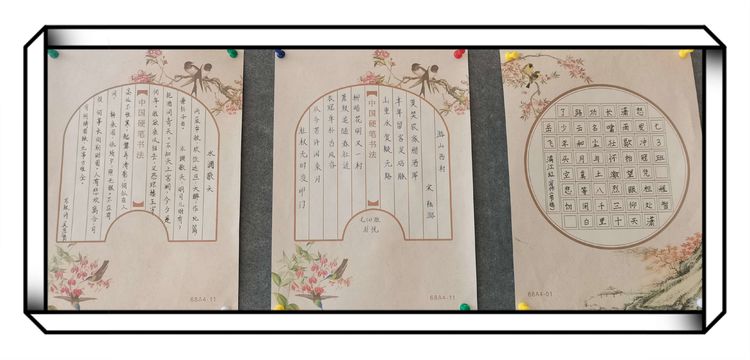 水调歌头
丙辰中秋,欢饮达旦,大醉,作此篇
兼怀子由。 水调歌头 明月几时有?
把酒问青天。不知天上宫阙,今夕是
何年。我欲乘风归去,又恐琼楼玉宇,
中国硬笔书法
高处不胜寒。起舞弄清影,何似在人
间。转朱阁,低绮户,照无眠。不应有
恨,何事长向别时圆?人有悲欢离合,月
有阴晴圆缺,此事古难全。
68A4-11
游山西村
宋 陆游
莫笑农家腊酒浑
丰年留客足鸡豚
山重水复疑无路
中国硬笔书法
柳暗花明又一村
箫鼓追随春社近
衣冠简朴古风存
从今若许闲乘月
拄杖无时夜叩门
68A4-11
怒发冲冠凭栏处潇
潇雨歇抬望眼仰天
长啸壮怀激烈三十
功名尘与土八千里
路云和月莫等闲白
了少年头空悲切
岳飞
满江红
68A4-01